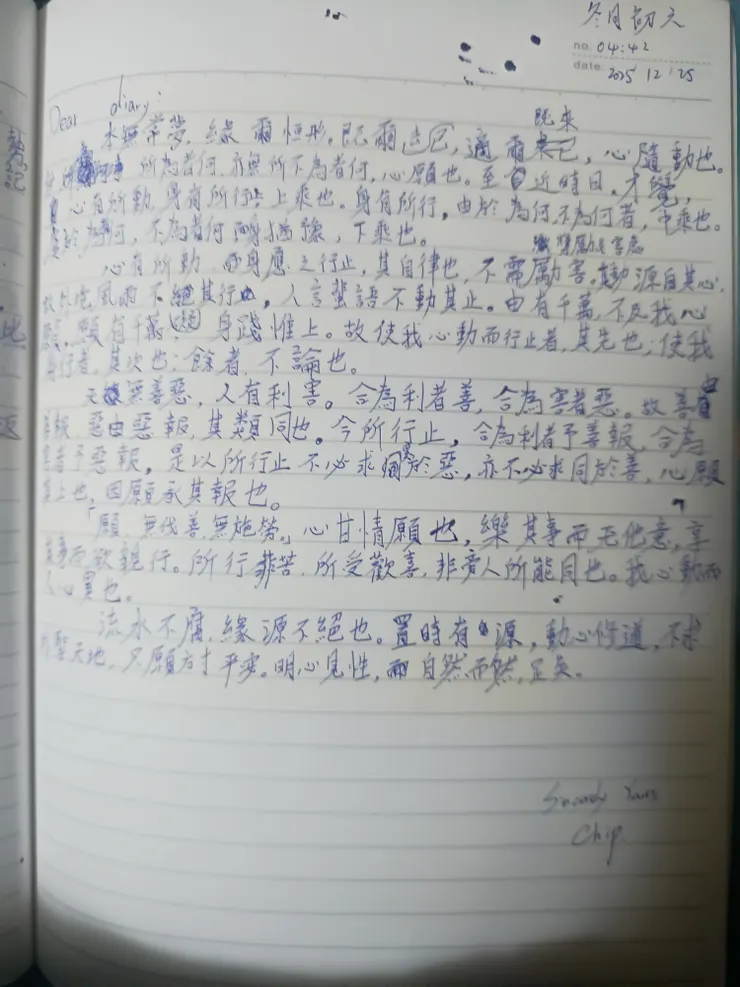 冬月初六
no. 04:42
date. 2025 12 25
Dear diary:
既来
水無常勢,緣爾恒形。既爾,適爾,心隨動也。
所為者何,亦無所不為者何,心願也。至近時日,才覺,
心有所動,身有所行,上乘也。身有所行,由於為何不為何者,中乘也。
為何,不為者何而身猶豫,下乘也。
心有所動,身應之行止,其自律也,不需勵害。動源自其心,
風雨不絕其行,人言蜚語不動其止。由有千萬,不及我心
願。願有千萬,身踐惟上。故使我心動而行止者,其先也;使我
行者,其次也;餘者,不論也。
天無善惡,人有利害。合為利者善,合為害者惡。故善由
善報,惡由惡報,其類同也。今所行止,合為利者予善報,合為
害者予惡報。是以所行止不必求同於惡,亦不必求同於善,心願
其上也,因願承其報也。
「願無伐善,無施勞。」心甘情願也,樂其事而无他意,享
其事而欲親行。所行非苦,所受歡喜,非旁人所能同也。我心動而
人心異也。
流水不腐,緣源不絕也。置時有源,動心修道,不求
天地,只願方寸平安。明心見性,自然而然,足矣。
Chip